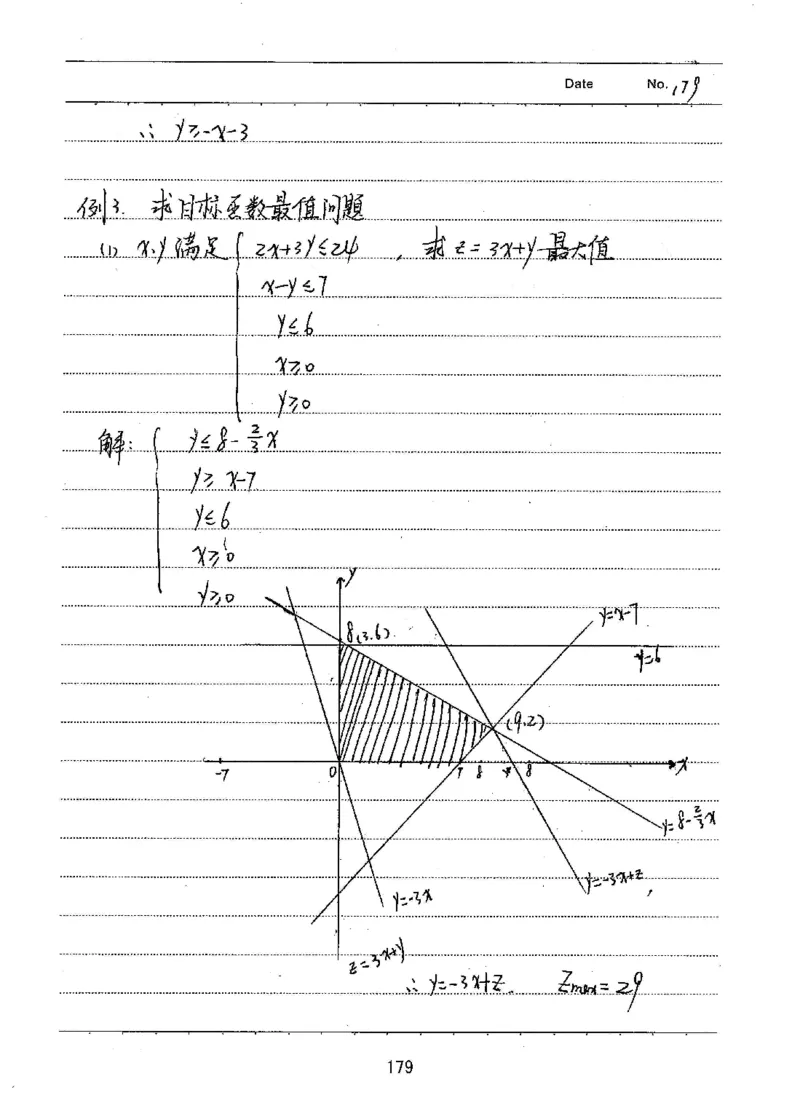 Date No. 179
∴ y≥-x-3
例3. 求目标函数最值问题
(1) x,y满足 { 2x+3y≤24 , 求z=3x+y最大值
x-y≤7
y≤6
x≥0
y≥0
解: { y≤8-2/3x
y≥x-7
y≤6
x≥0
y≥0
y
y=x-7
8(3.6)
y=6
(9.2)
-7 0 7 8 8 x
y=8-2/3x
y=-3x+z
y=-3x
z=3x+y
∴ y=-3x+z. Zmax=29
179